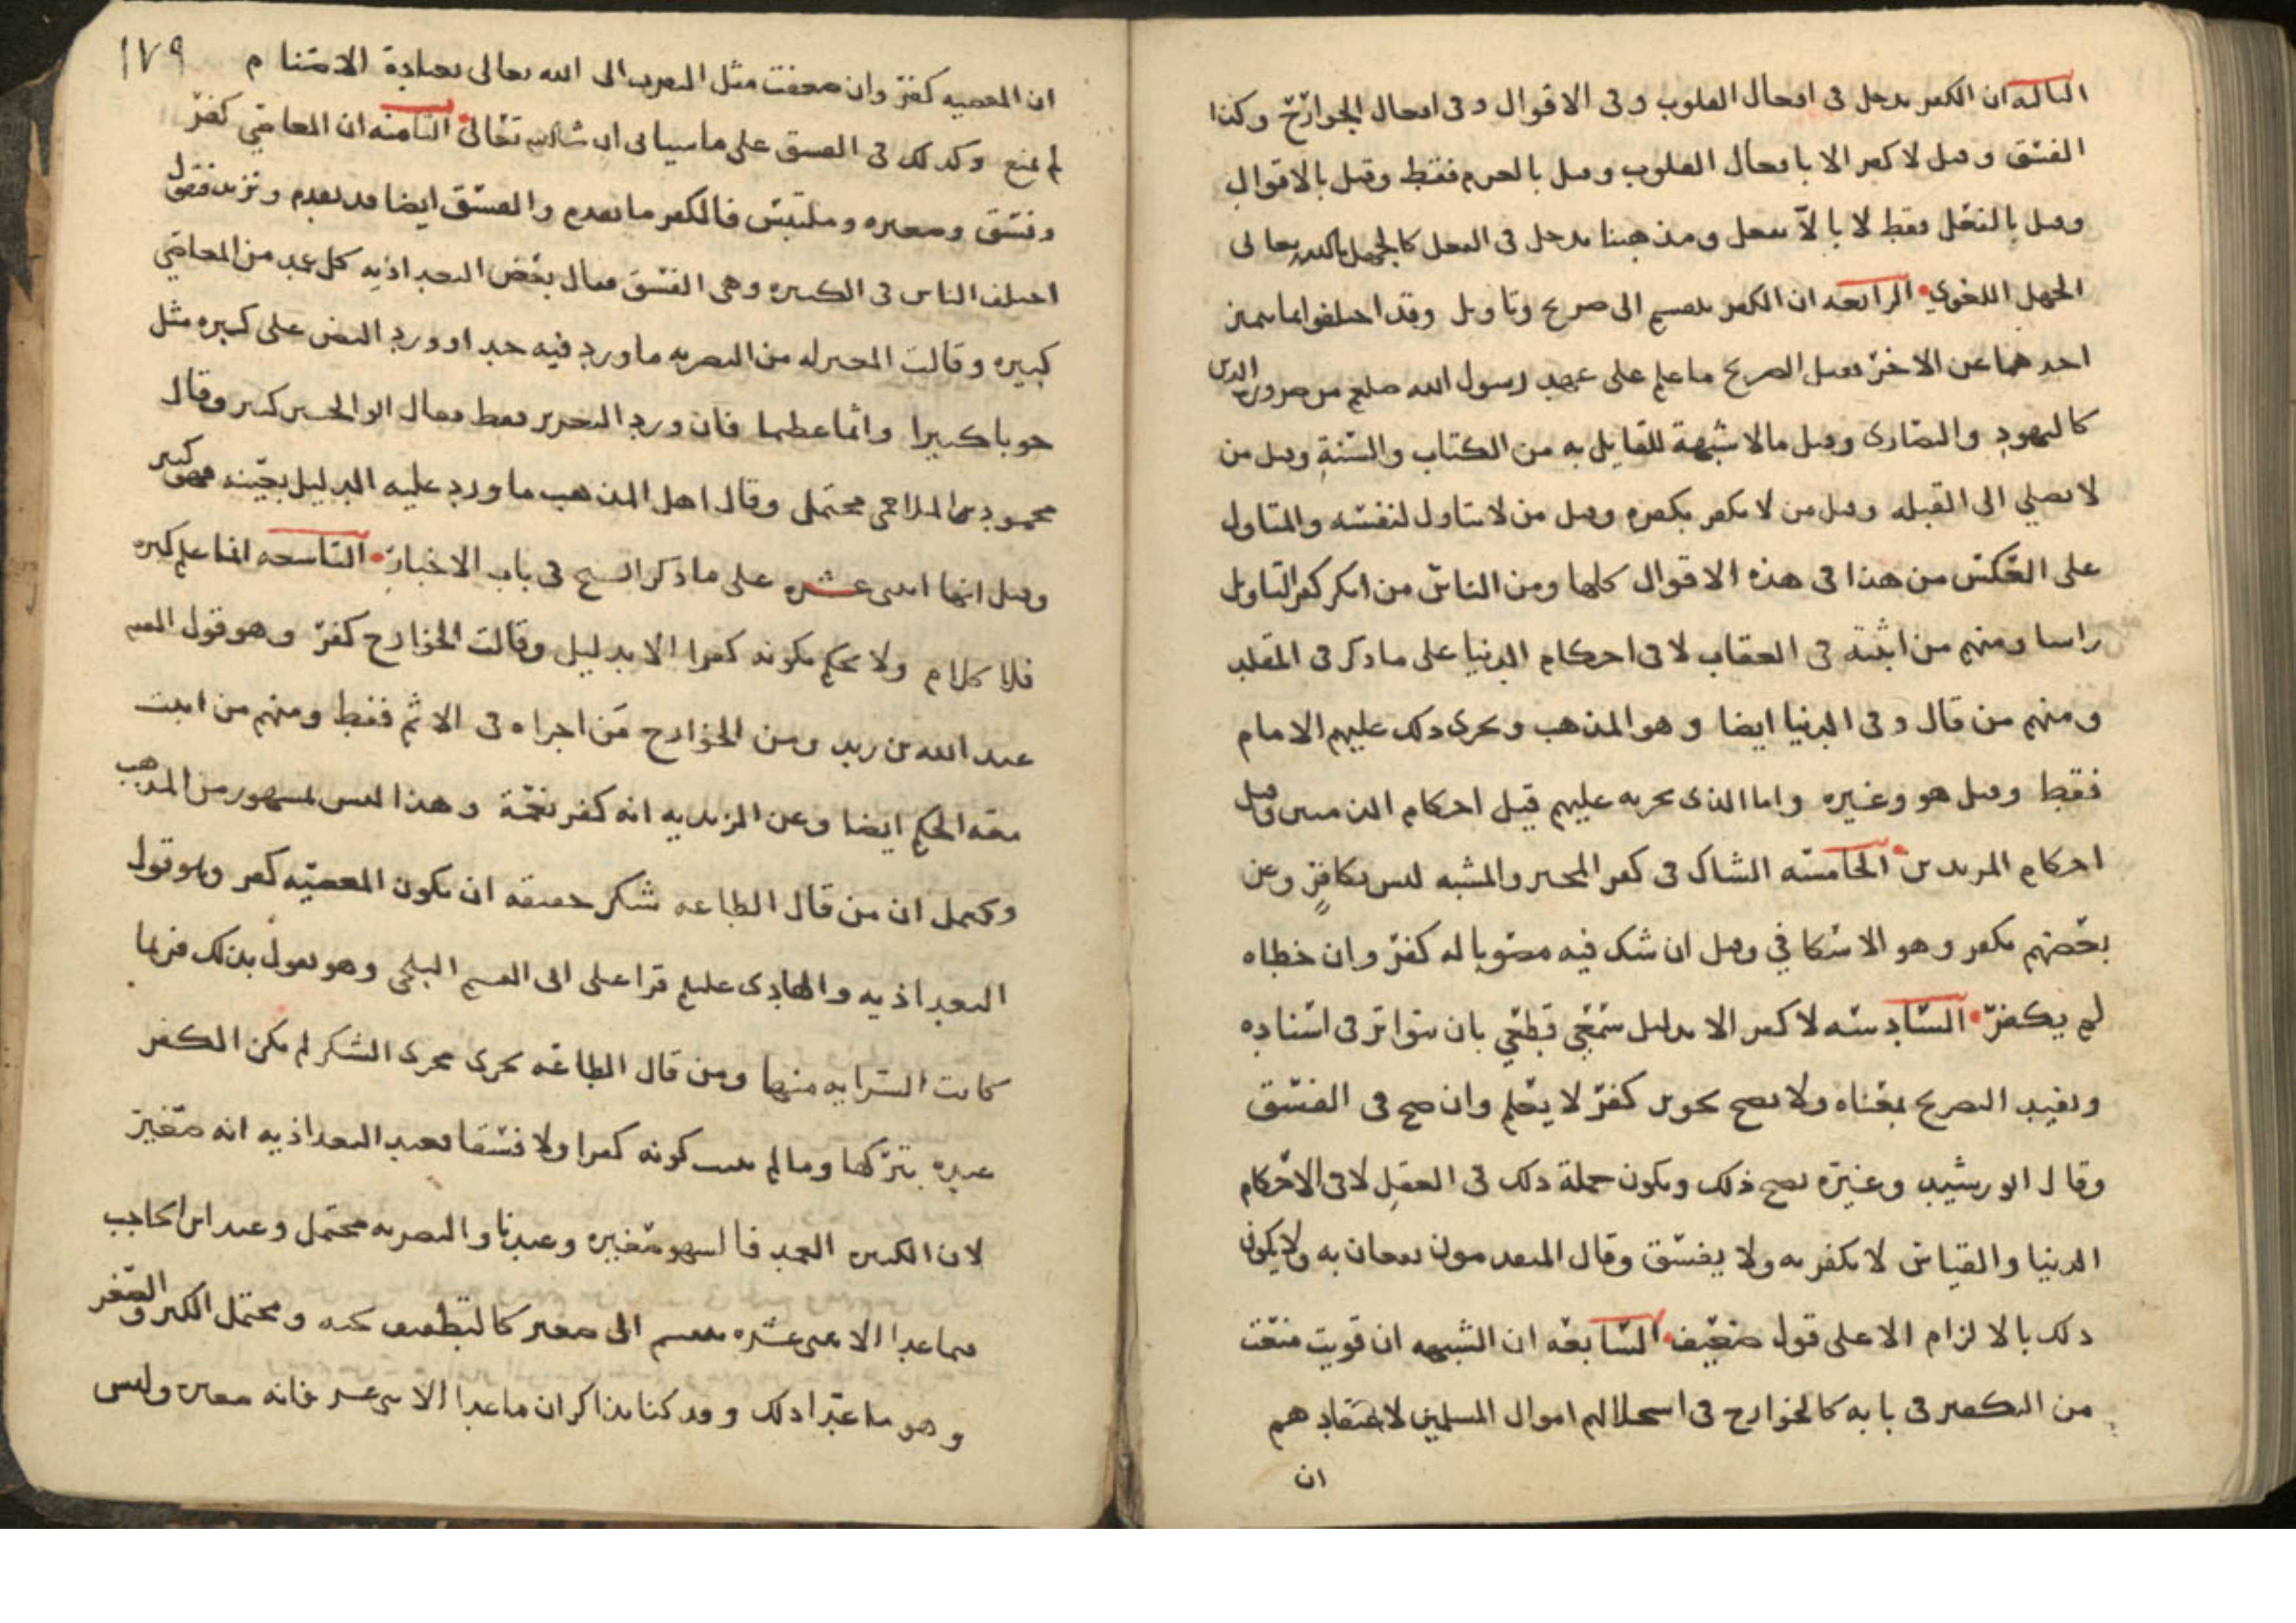 الثالثه ان الكفر يدخل في افعال القلوب وفي الاقوال وفي افعال الجوارح وكذا
الفسق وقيل لا كفر الا بافعال القلوب وقيل بالعزم فقط وقيل بالاقوال
وقيل بالفعل فقط لا بالا نفعل ومذهبنا يدخل في الفعل كالجهل بالله تعالى
الجهل اللغوي الرابعه ان الكفر ينقسم الى صريح وتاويل وقد اختلفوا بما يتميز
احدهما عن الاخر فقيل الصريح ما علم على عهد رسول الله صلعم من ضرورة الدين
كاليهود والنصارى وقيل مالا شبهة للقايل به من الكتاب والسنة وقيل من
لا يصلي الى القبله وقيل من لا يكفر بكفره وقيل من لا يتاول لنفسه والمتاول
على العكس من هذا في هذه الاقوال كلها ومن الناس من انكر كفر التاويل
راسا ومنهم من اثبته في العقاب لا في احكام الدنيا على ما ذكر في المقلد
ومنهم من قال وفي الدنيا ايضا وهو المذهب ويجري ذلك عليهم الامام
فقط وقيل هو وغيره واما الذي يجريه عليهم قيل احكام الذميين وقيل
احكام المرتدين الخامسه الشاك في كفر المجبر والمشبه ليس بكافر وعن
بعضهم يكفر وهو الاسكافي وقيل ان شك فيه مصوبا له كفر وان خطاه
لم يكفر السادسه لا كفر الا بدليل سمعي قطعي بان يتواتر في اسناده
ويفيد الصريح بمعناه ولا يصح تجويز كفر لا يعلم وان صح في الفسق
وقال ابو رشيد وغيره يصح ذلك ويكون جملة ذلك في العقل لا في الاحكام
الدنيا والقياس لا يكفر به ولا يفسق وقال المتقدمون يقعان به ولا يكون
ذلك بالالزام الا على قول ضعيف السابعه ان الشبهه ان قويت منعت
من التكفير في بابه كالخوارج في استحلالهم اموال المسلمين لاعتقادهم
ان
١٧٩
ان المعصيه كفر وان ضعفت مثل التقرب الى الله تعالى بعبادة الاصنام
لم يمنع وكذلك في الفسق على ما سياتي ان شا الله تعالى الثامنه ان المعاصي كفر
وفسق وصغيره وملتبس فالكفر ما تقدم والفسق ايضا قد تقدم ونزيد فنقول
اختلف الناس في الكبيره وهي الفسق فقال بعض البغداذيه كل عمد من المعاصي
كبيره وقالت المعتزله من البصريه ما ورد فيه حد او ورد النص على كبره مثل
حوبا كبيرا واثما عظيما فان ورد التحريم فقط فقال ابو الحسين كبير وقال
محمود بن الملاحمي محتمل وقال اهل المذهب ما ورد عليه الدليل بعينه فهو كبير
وقيل انها اثنى عشره على ما ذكر الشيخ في باب الاخبار التاسعه انما علم كبره
فلا كلام ولا يحكم بكونه كفرا الا بدليل وقالت الخوارج كفر وهو قول القسم
عبد الله بن زيد ومن الخوارج من اجراه في الاثم فقط ومنهم من اثبت
معه الحكم ايضا وعن الزيديه انه كفر نعمة وهذا ليس بمشهور من المذهب
ويحتمل ان من قال الطاعه شكر حقيقه ان يكون المعصيه كفر وهو قول
البغداذيه والهادي عليلم قرا على ابي القسم البلخي وهو يقول بذلك فربما
كانت السرايه منها ومن قال الطاعه يجرى مجرى الشكر لم يكن الكفر
عنده بتركها وما لم يثبت كونه كفرا ولا فسقا فعند البغداذيه انه صغير
لان الكبيره العمد فالسهو صغيره وعندنا والبصريه محتمل وعند ابن الحاجب
فيما عدا الاثنى عشره ينقسم الى صغير كالتطفيف بحبه ومحتمل الكبر والصغر
وهو ما عدا ذلك وقد كنا نذاكر ان ما عدا الاثنى عشر فانه صغير وليس